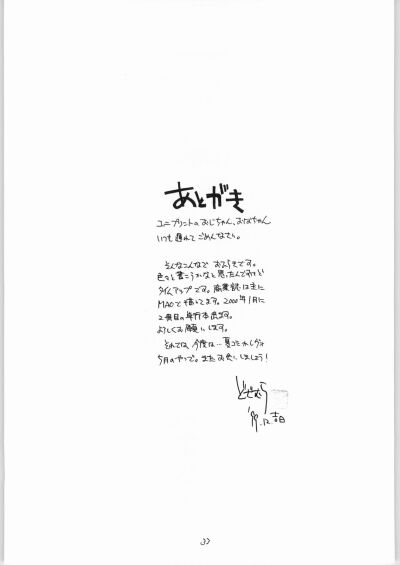 あとがき
ユニプリントのおじちゃん、おばちゃん
いつも遅れてごめんなさい。
そんなこんなで おふろです。
色々と書こうかなと思ったんですけど
タイムアップです。商業誌は主に
MAOで描いてます。2000年1月に
2冊目の単行本出ます。
よろしくお願いします。
それでは 今度は…夏コミかしら
5月のやつで。またお会いしましょう！
どざむら
'99.12.吉日
33